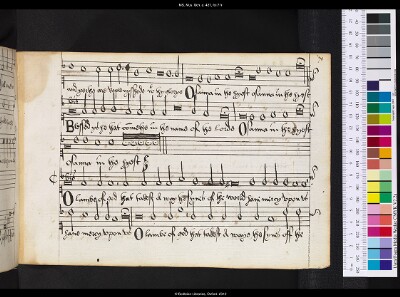 MS. Mus. Sch. e. 420, fol. 7r
Osanna in the hyest osanna in the hyest
Blessed ys he that comethe in the name of the Lorde Osanna in the hyest
osanna in the hyest
O lambe of god that takest a way the synes of the world have mercy upon us
have mercy upon us O lambe of god that takest a waye the synes off the
© Bodleian Libraries, Oxford